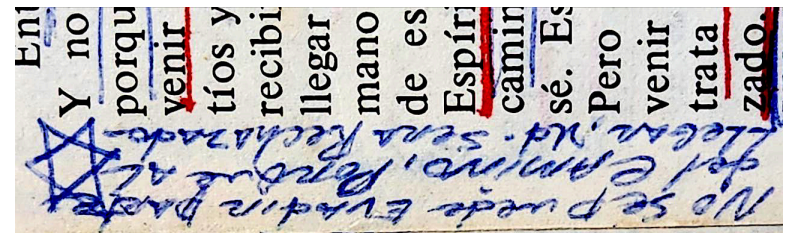 Ent
Y no
porqu
venir
tíos y
recibi
llegar
mano
de es
Espíri
camin
sé. Es
Pero
venir
trata
zado.
No se puede Evadir parte
del Camino, Porque al
llegar, Ud. Sera Rechazado.